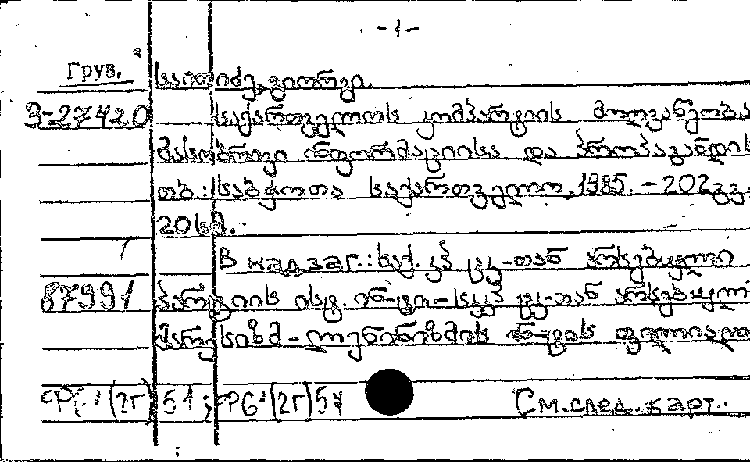 -1-
Груз.
საითიძე, გიორგი.
3-27420 საქართველოს კომპარტიის მოღვაწეობა
მასობრივი ინფორმაციისა და პროპაგანდის
თბ.: საბჭოთა საქართველო, 1985. - 202 გვ.
20სმ.
В надзаг.: საქ. კპ ცკ-თან არსებული
87991 პარტიის ისტ. ინ-ტი - სკკპ ცკ-თან არსებული
მარქსიზმ-ლენინიზმის ინ-ტის ფილიალი
(2г)51; ФБ1(2г)51 См. след. карт.